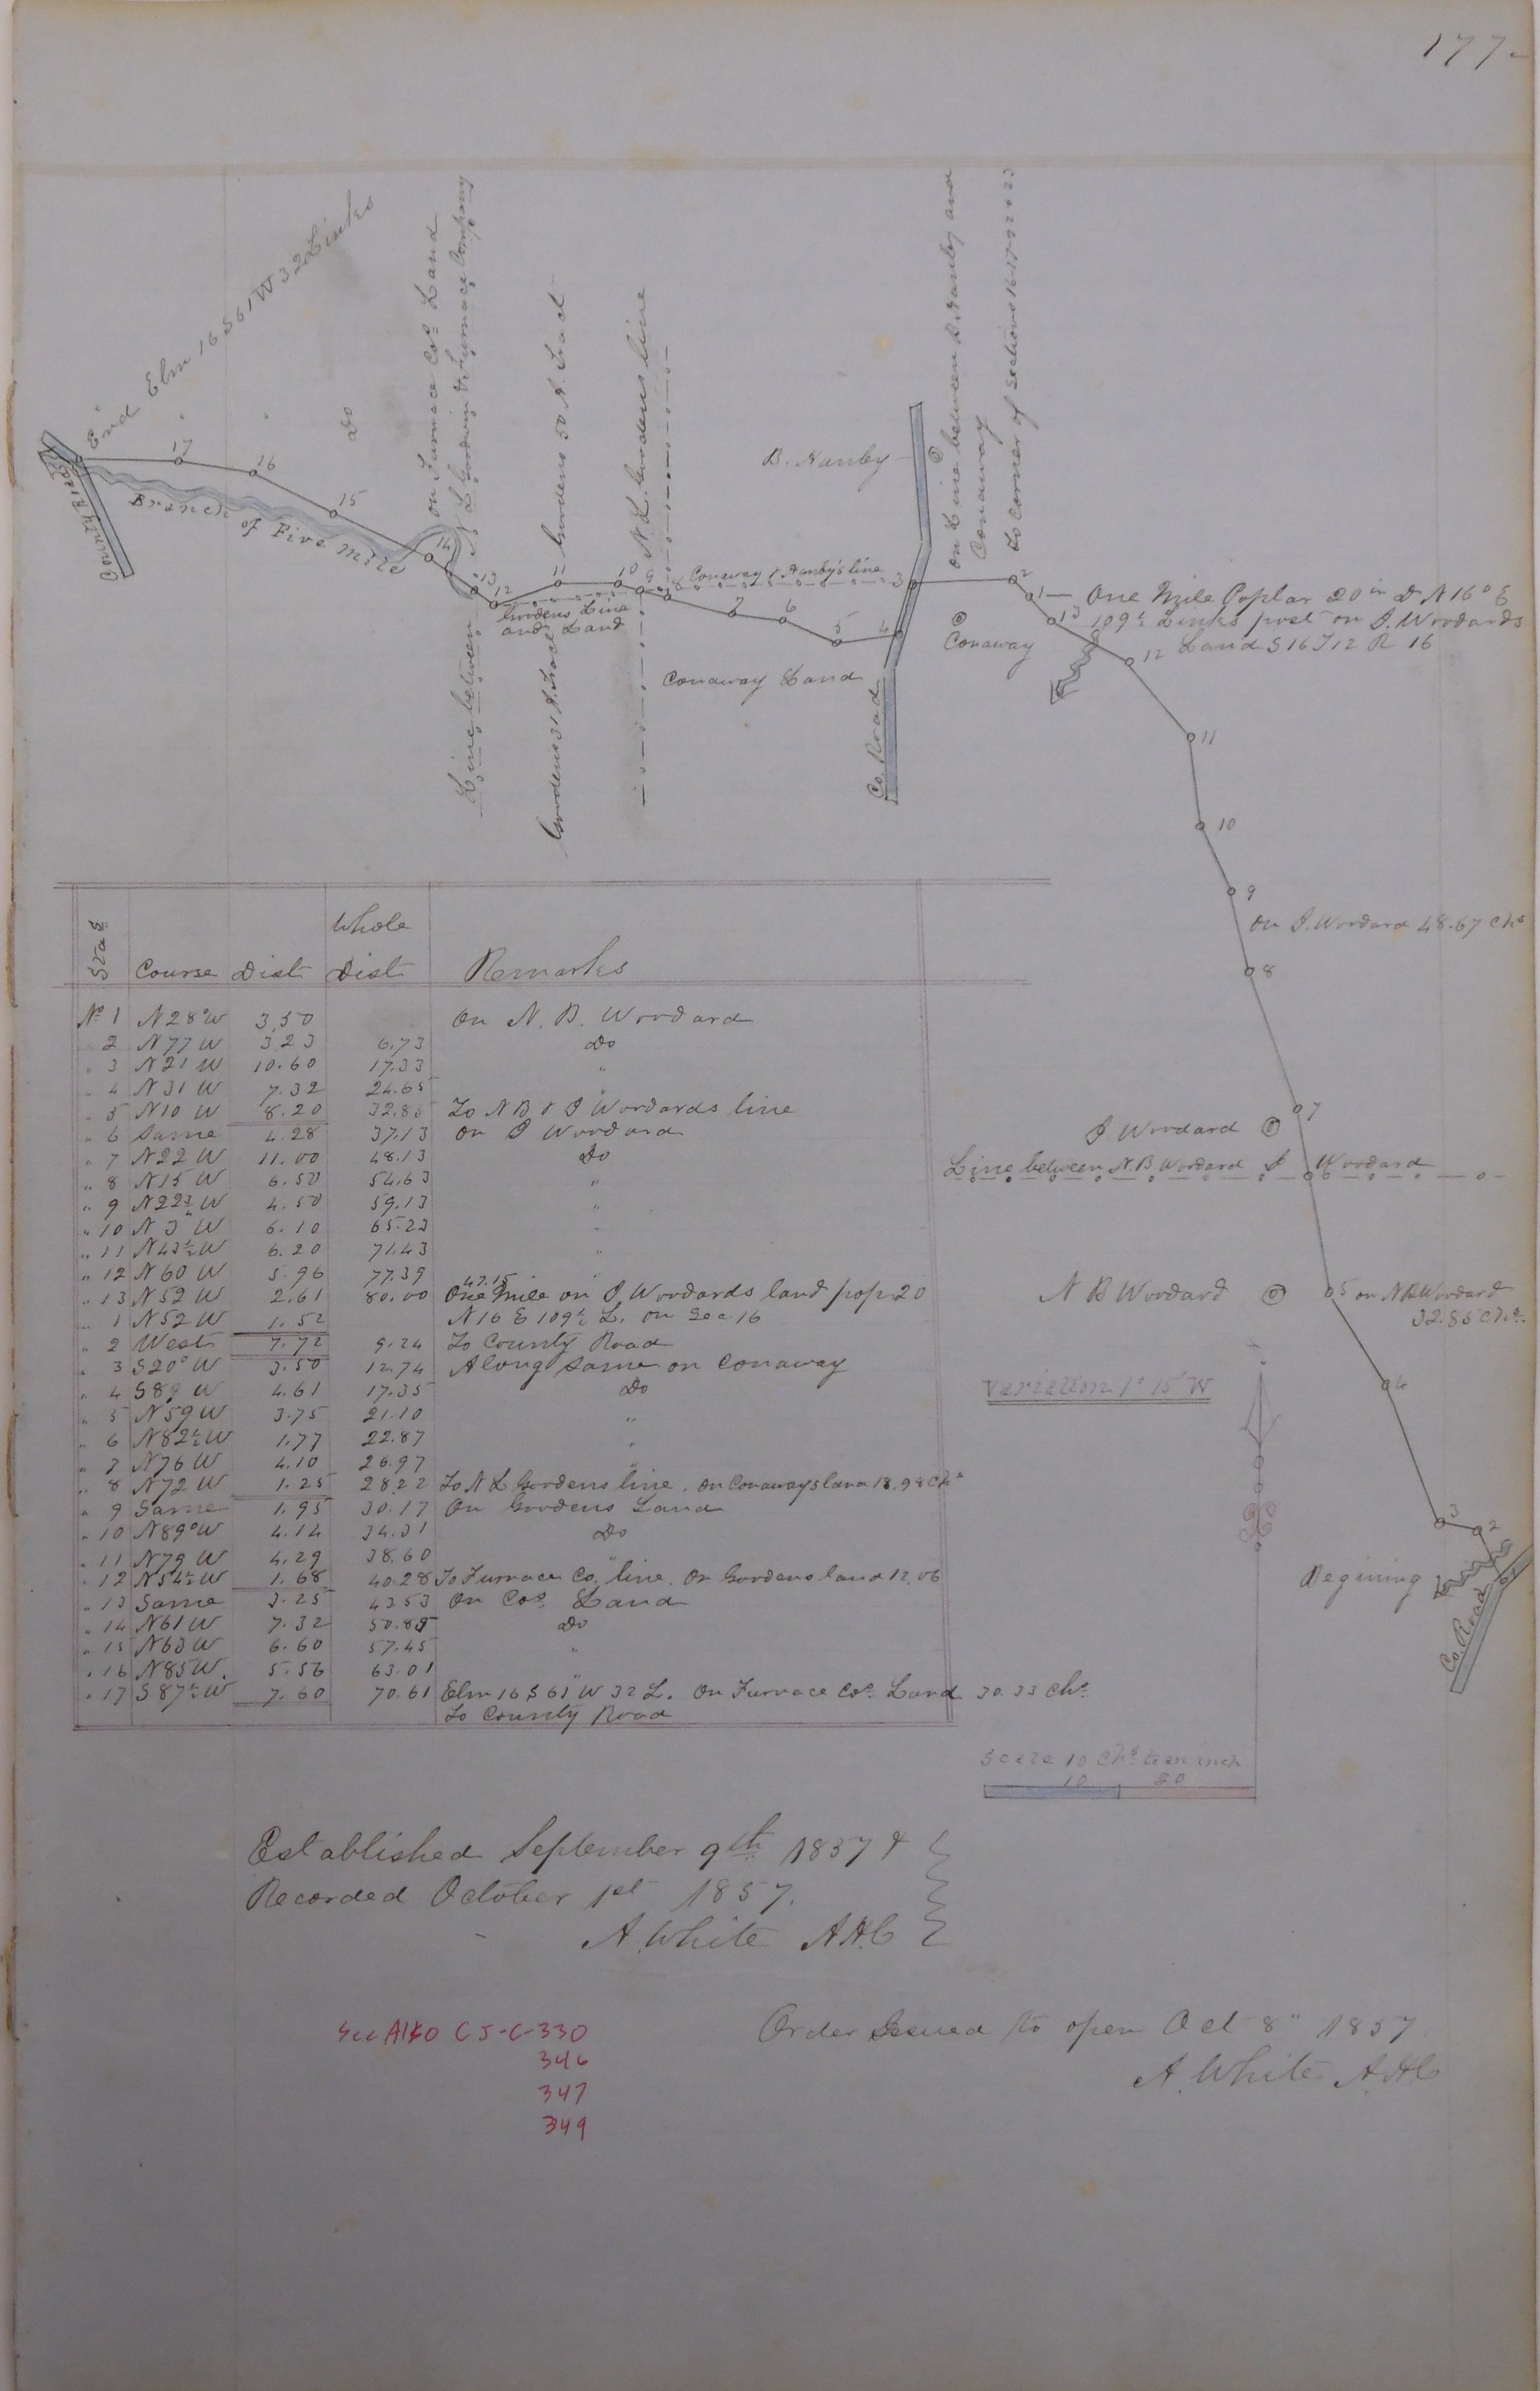 177
End Elm 16 S61W 32 Links
Do
on Furnace Cos Land
Line between N L Gordin & Furnace Company
Gordens 31 A. Tract
Gordens 50 A. Tract
N. L. Gordens line
B. Hanby
on Line between B. Hanby and
Conaway
To Corner of Sections 16-17-20 & 21
County Road
Branch of Five Mile
17
16
15
14
13
12
11
10
9
8
7
6
5
4
3
2
1
Conaway & Hanby's line
Gordens Line
and Land
Conaway Land
Conaway
Co. Road
One Mile Poplar 20 in D N 16° E
109½ Links post on J. Woodards
Land S16 T12 R 16
13
12
11
10
9
on J. Woodard 48.67 Chs
8
7
J. Woodard
Line between N. B. Woodard J Woodard
6
N B Woodard
5 on N B Woodard
32.85 Chs.
4
Variation 1° 15' W
3
2
1
Begining
Co Road
Stas Course Dist Whole Dist Remarks
No 1 N28°W 3.50 On N. B. Woodard
" 2 N77W 3.23 6.73 Do
" 3 N21W 10.60 17.33 "
" 4 N31W 7.32 24.65 "
" 5 N10W 8.20 32.85 To N B & J Woodards line
" 6 Same 4.28 37.13 On J Woodard
" 7 N22W 11.00 48.13 Do
" 8 N15W 6.50 54.63 "
" 9 N22¾W 4.50 59.13 "
" 10 N3W 6.10 65.23 "
" 11 N43½W 6.20 71.43 "
" 12 N60W 5.96 77.39 "
47.15
" 13 N52W 2.61 80.00 One Mile on J Woodards land pop 20
" 1 N52W 1.52 N16 E 109½ L. on Sec 16
" 2 West 7.72 9.24 To County Road
" 3 S20°W 3.50 12.74 Along same on Conaway
" 4 S89W 4.61 17.35 Do
" 5 N59W 3.75 21.10 "
" 6 N82½W 1.77 22.87 "
" 7 N76W 4.10 26.97 "
" 8 N72W 1.25 28.22 To N L Gordens line. on Conaways land 18.98 Chs
" 9 Same 1.95 30.17 On Gordens Land
" 10 N89°W 4.14 34.31 Do
" 11 N79W 4.29 38.60 "
" 12 N54½W 1.68 40.28 To Furnace Co. line. On Gordens land 12.06
" 13 Same 3.25 43.53 On Cos. Land
" 14 N61W 7.32 50.85 Do
" 15 N63W 6.60 57.45 "
" 16 N85W. 5.56 63.01 "
" 17 S87½W 7.60 70.61 Elm 16 S 61° W 32 L. On Furnace Cos. Land 30.33 Chs.
To County Road
Scale 10 Chs to an inch
10 20
Established September 9th 1857 &
Recorded October 1st 1857.
A. White A.H.C
See Also CJ-C-330
346
347
349
Order Issued to open Oct 8" 1857
A. White A.H.C